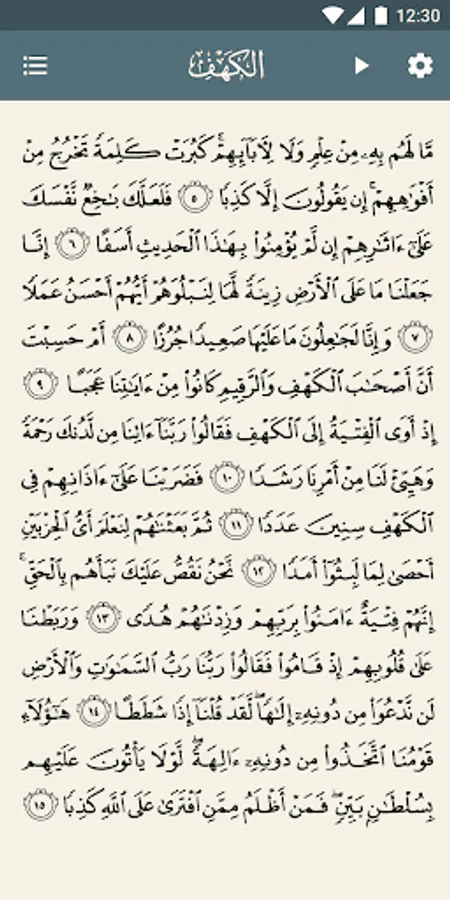 12:30
الكهف
مَّا لَهُم بِهِۦ مِنْ عِلْمٍ وَلَا لِـَٔابَآئِهِمْ ۚ كَبُرَتْ كَلِمَةً تَخْرُجُ مِنْ
أَفْوَٰهِهِمْ ۚ إِن يَقُولُونَ إِلَّا كَذِبًا ٥ فَلَعَلَّكَ بَـٰخِعٌ نَّفْسَكَ
عَلَىٰٓ ءَاثَـٰرِهِمْ إِن لَّمْ يُؤْمِنُوا۟ بِهَـٰذَا ٱلْحَدِيثِ أَسَفًا ٦ إِنَّا
جَعَلْنَا مَا عَلَى ٱلْأَرْضِ زِينَةً لَّهَا لِنَبْلُوَهُمْ أَيُّهُمْ أَحْسَنُ عَمَلًا
٧ وَإِنَّا لَجَـٰعِلُونَ مَا عَلَيْهَا صَعِيدًا جُرُزًا ٨ أَمْ حَسِبْتَ
أَنَّ أَصْحَـٰبَ ٱلْكَهْفِ وَٱلرَّقِيمِ كَانُوا۟ مِنْ ءَايَـٰتِنَا عَجَبًا ٩
إِذْ أَوَى ٱلْفِتْيَةُ إِلَى ٱلْكَهْفِ فَقَالُوا۟ رَبَّنَآ ءَاتِنَا مِن لَّدُنكَ رَحْمَةً
وَهَيِّئْ لَنَا مِنْ أَمْرِنَا رَشَدًا ١٠ فَضَرَبْنَا عَلَىٰٓ ءَاذَانِهِمْ فِى
ٱلْكَهْفِ سِنِينَ عَدَدًا ١١ ثُمَّ بَعَثْنَـٰهُمْ لِنَعْلَمَ أَىُّ ٱلْحِزْبَيْنِ
أَحْصَىٰ لِمَا لَبِثُوٓا۟ أَمَدًا ١٢ نَّحْنُ نَقُصُّ عَلَيْكَ نَبَأَهُم بِٱلْحَقِّ ۚ
إِنَّهُمْ فِتْيَةٌ ءَامَنُوا۟ بِرَبِّهِمْ وَزِدْنَـٰهُمْ هُدًى ١٣ وَرَبَطْنَا
عَلَىٰ قُلُوبِهِمْ إِذْ قَامُوا۟ فَقَالُوا۟ رَبُّنَا رَبُّ ٱلسَّمَـٰوَٰتِ وَٱلْأَرْضِ
لَن نَّدْعُوَا۟ مِن دُونِهِۦٓ إِلَـٰهًا ۖ لَّقَدْ قُلْنَآ إِذًا شَطَطًا ١٤ هَـٰٓؤُلَآءِ
قَوْمُنَا ٱتَّخَذُوا۟ مِن دُونِهِۦٓ ءَالِهَةً ۖ لَّوْلَا يَأْتُونَ عَلَيْهِم
بِسُلْطَـٰنٍۭ بَيِّنٍ ۖ فَمَنْ أَظْلَمُ مِمَّنِ ٱفْتَرَىٰ عَلَى ٱللَّهِ كَذِبًا ١٥